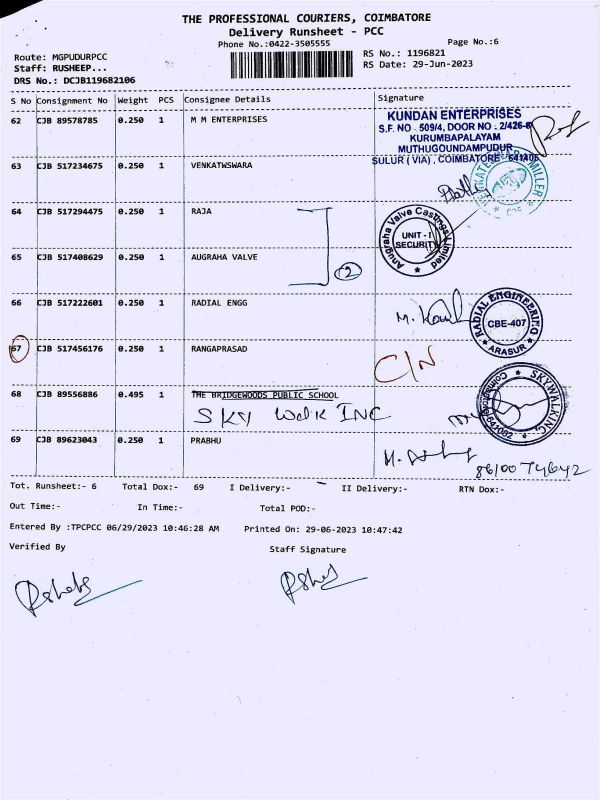 THE PROFESSIONAL COURIERS, COIMBATORE
Delivery Runsheet - PCC
Phone No.:0422-3505555
Page No.:6
Route: MGPUDURPCC
RS No.: 1196821
Staff: RUSHEEP...
RS Date: 29-Jun-2023
DRS No.: DCJB119682106
S No Consignment No Weight PCS Consignee Details Signature
62 CJB 89578785 0.250 1 M M ENTERPRISES
KUNDAN ENTERPRISES
S.F. NO. 509/4, DOOR NO. 2/426-
KURUMBAPALAYAM
MUTHUGOUNDAMPUDUR
SULUR (VIA), COIMBATORE
63 CJB 517234675 0.250 1 VENKATWSWARA
MILLER
64 CJB 517294475 0.250 1 RAJA
Anugraha Valve Castings Limited
UNIT - I
SECURITY
65 CJB 517408629 0.250 1 AUGRAHA VALVE
2
66 CJB 517222601 0.250 1 RADIAL ENGG
RADIAL ENGINEERING
CBE-407
ARASUR
67 CJB 517456176 0.250 1 RANGAPRASAD
C/N
68 CJB 89556886 0.495 1 THE BRIDGEWOODS PUBLIC SCHOOL
SKY WALK INC
SKYWALK INC
641062
69 CJB 89623043 0.250 1 PRABHU
Tot. Runsheet:- 6 Total Dox:- 69 I Delivery:- II Delivery:- RTN Dox:-
Out Time:- In Time:- Total POD:-
Entered By :TPCPCC 06/29/2023 10:46:28 AM Printed On: 29-06-2023 10:47:42
Verified By Staff Signature